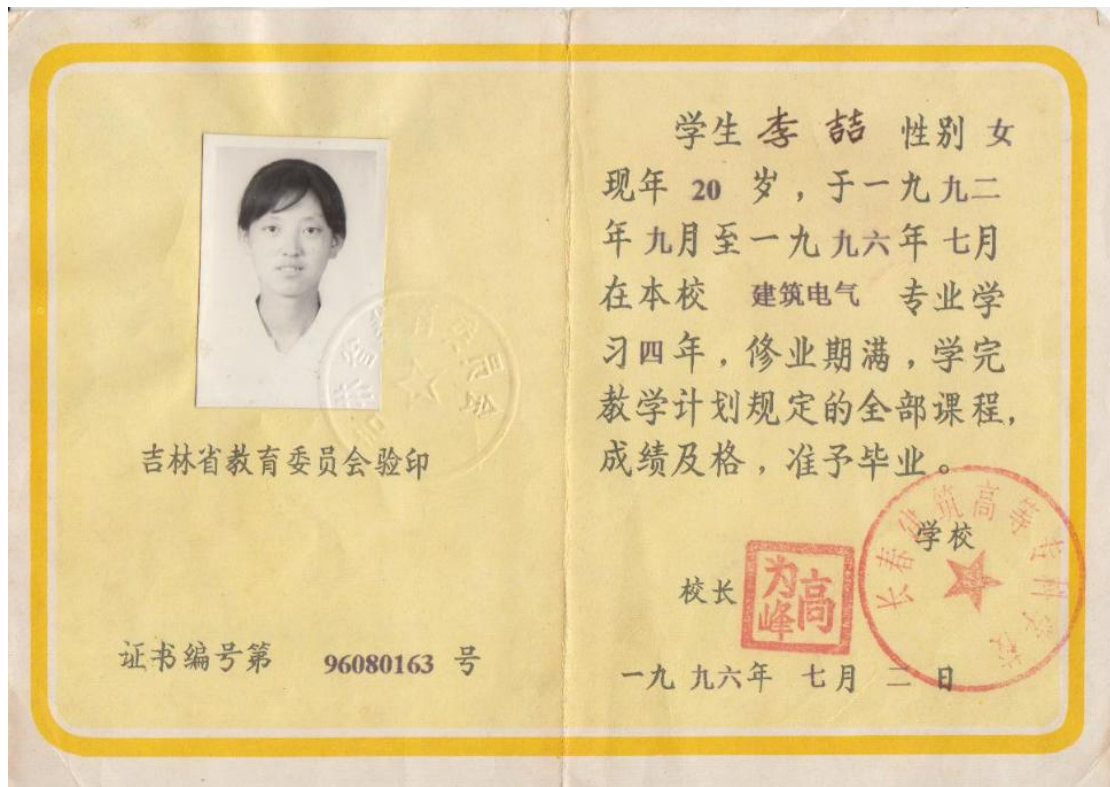 吉林省教育委员会验印
证书编号第 96080163 号
学生 李 喆 性别 女
现年 20 岁，于一九九二
年九月至一九九六年七月
在本校 建筑电气 专业学
习四年，修业期满，学完
教学计划规定的全部课程，
成绩及格，准予毕业。
学校
长春建筑高等专科学校
校长
高为峰
一九九六年 七月 二 日